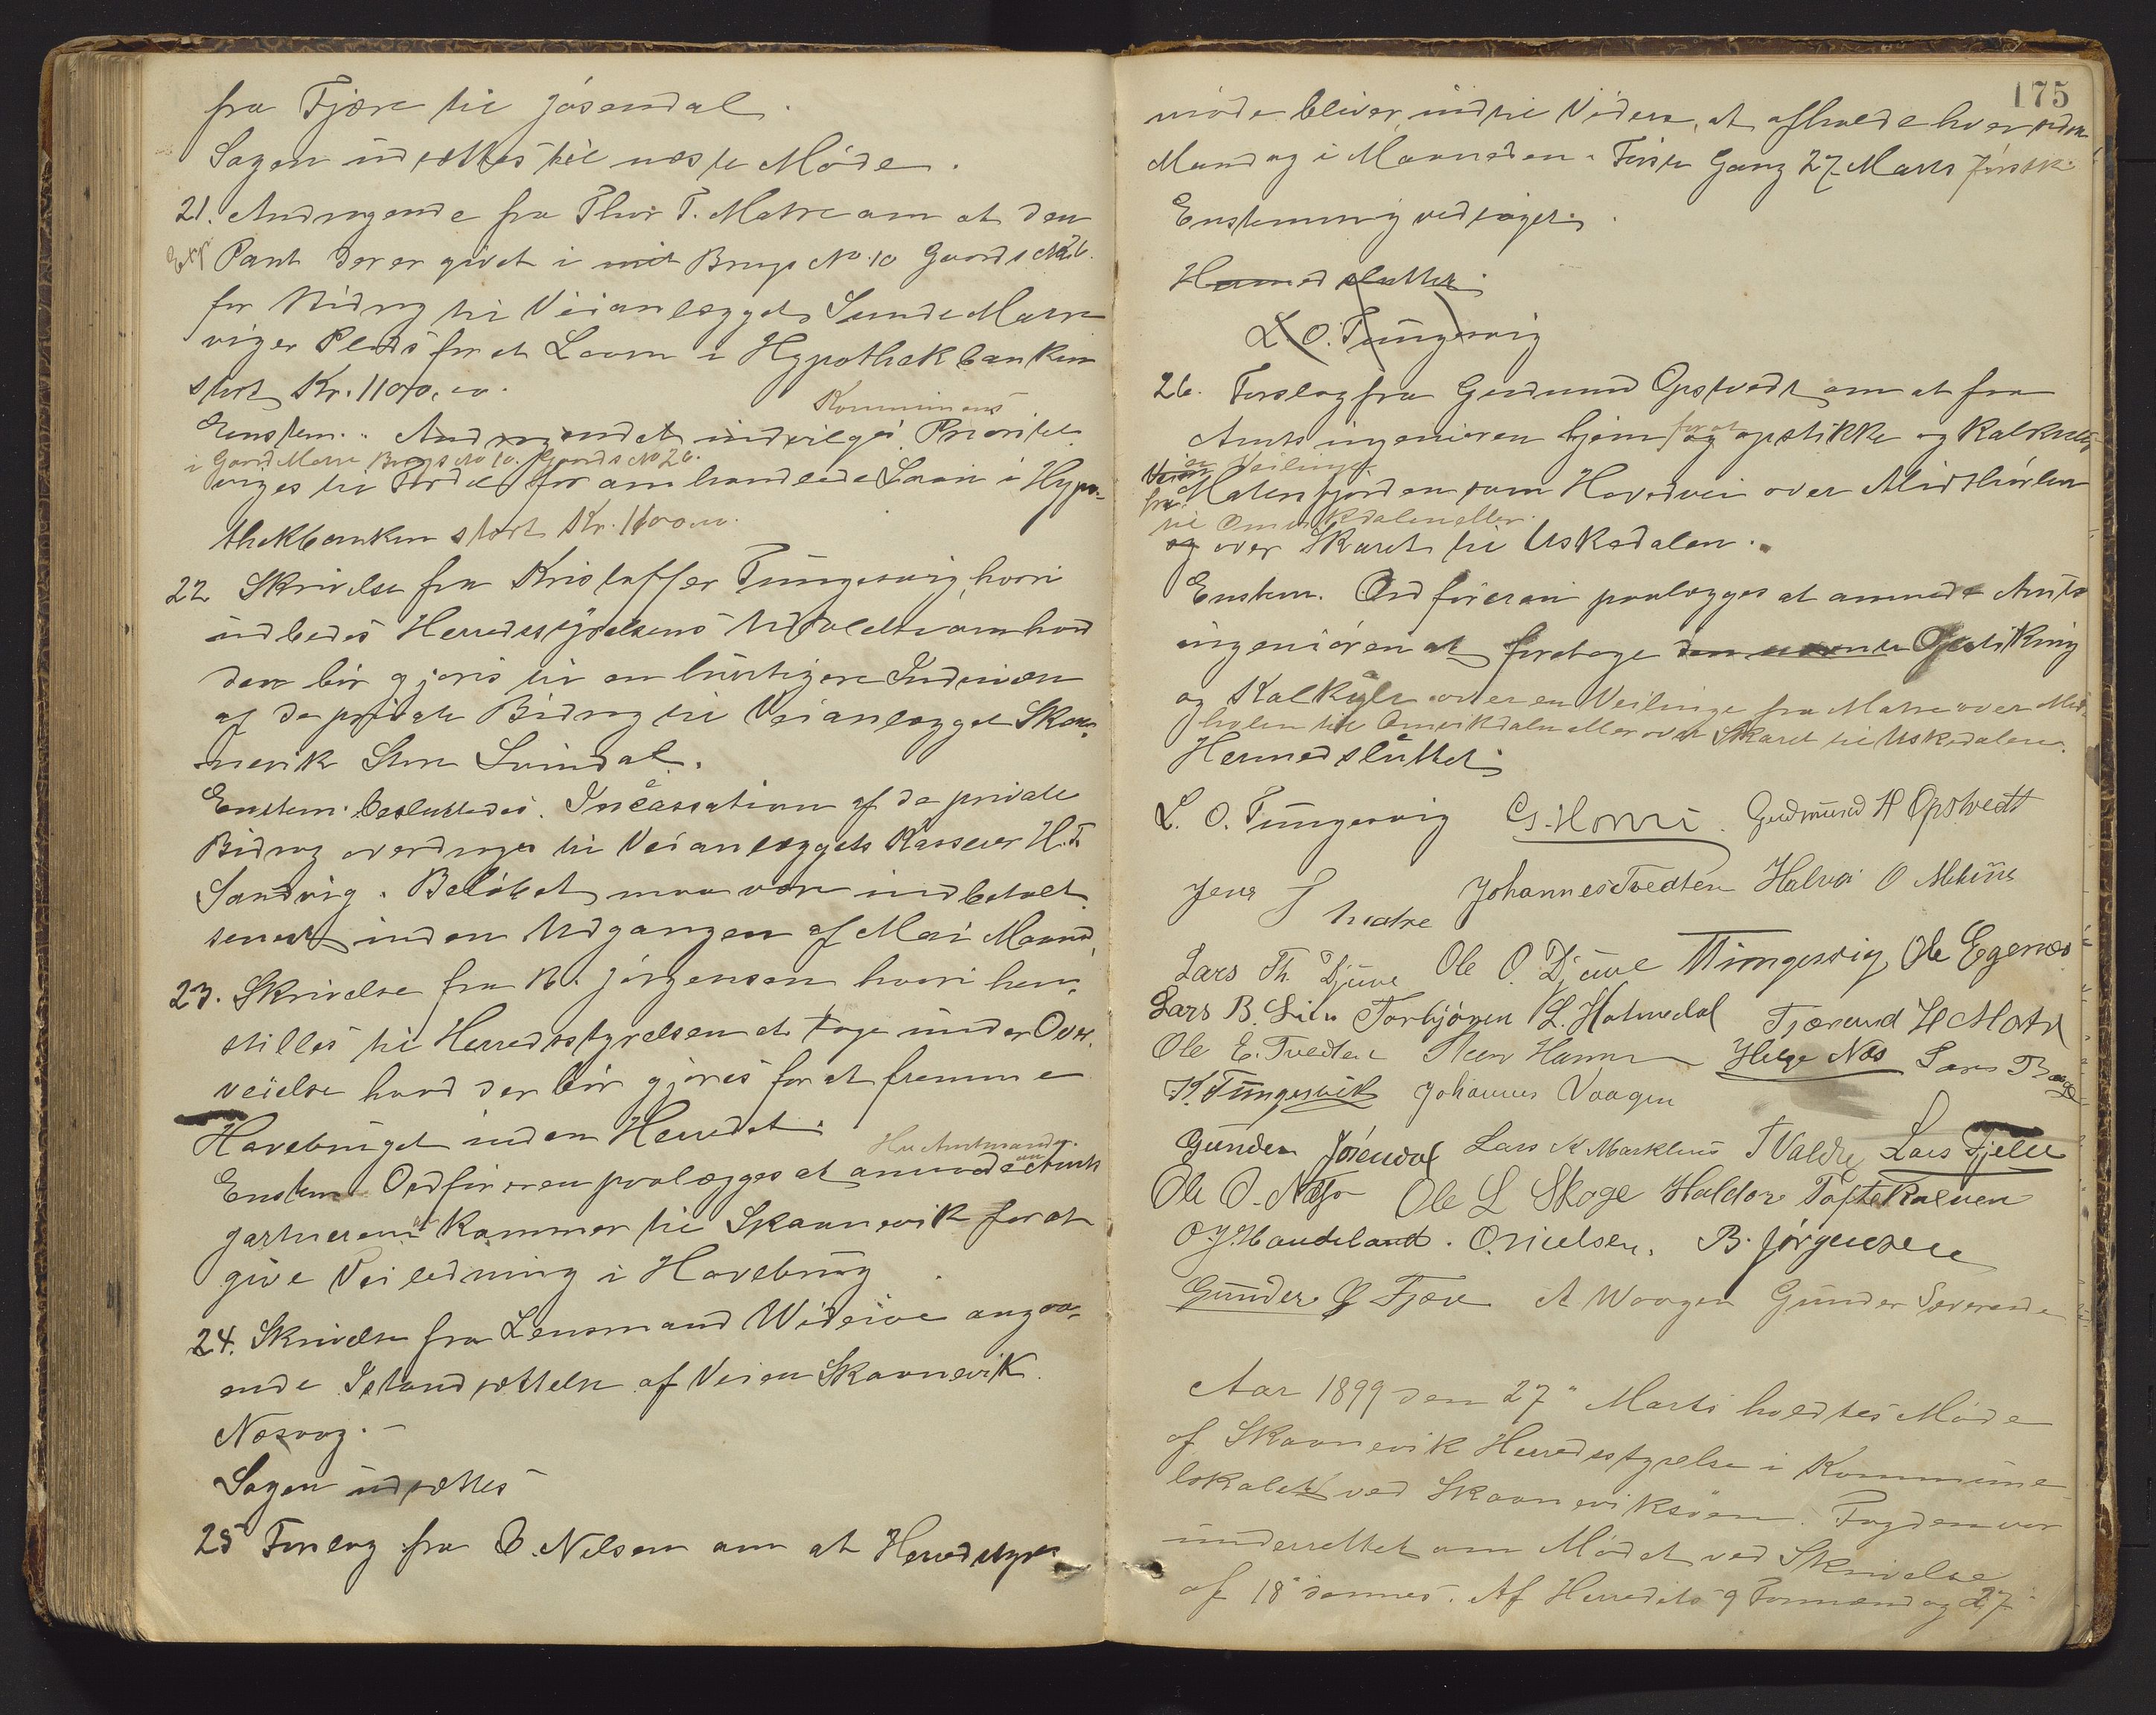 fra Fjære til Jósendal.
Sagen udsættes til næste Móde.
21. Andragende fra Thor T. Matre om at den
Exp Pant der er givet i mit Brugs No 10 Gaards No 26.
for Bidrag til Veianlægget Sunde Matre
viger Plads for et Laan i Hypothekbanken
stort Kr. 1100,00.
Kommunens
Enstem. Andragendet indvilges. Prioritet
i Gaard Matre Brugs No 10. Gaards No 26.
viges til Fordel for omhandlede Laan i Hypo-
thekbanken stort Kr. 1100,00.
22 Skrivelse fra Kristoffer Tungesvig, hvori
udbedes Herredsstyrelsens Udtalelse om hvad
der bór gjøres til en hurtigere Inddrivelse
af de private Bidrag til Veianlægget Skaa-
nevik Store Svindal.
Enstem. besluttedes. Incassation af de private
Bidrag overdrages til Veianlæggets Kasserer H. T.
Sandvig. Belóbet maa være indbetalt
senest inden Udgangen af Mai Maaned.
23. Skrivelse fra B. Jórgensen hvori hen-
stilles til Herredsstyrelsen at tage under Over-
veielse hvad der bór gjóres for at fremme
Havebruget inden Herredet.
Hr. Amtmanden
Enstem Ordfóreren paalægges at anmode om Amts
gartneren kommer til Skaanevik for at
give Veiledning i Havebrug
24. Skrivelse fra Lensmand Wideróe angaa-
ende Istandsættelse af Veien Skaanevik
Næsvaag.-
Sagen udsættes
25 Forslag fra O. Nilsen om at Herredsstyre
175
móde bliver indtil Videre, at afholde hver sidste
Mandag i Maaneden. Fórste Gang 27 Marts fórstk.
Enstemmig vedtaget.
Hermed sluttet.
L. O. Tungesvig
26. Forslag fra Gudmund Opstvedt om at faa
Amtsingenióren hjem for at opstikke og kalkulere
en Veilinge
fra Matersfjorden som Hovedvei over Midthólen
til Ømvikdalen eller
og over Skaret til Uskedalen.
Enstem. Ordfóreren paalægges at anmode Amts
ingenióren at foretage den nævnte Opstikning
og Kalkyle over en Veilinge fra Matre over Mid-
hólen til Ømvikdalen eller over Skaret til Uskedalen.
Hermed sluttet
L. O. Tungesvig G. Horri. Gudmund H Opstvedt
Jens S Matre Johannes Tvedten Halvor O Milius
Lars Th. Djuve Ole O. Djuve T Tungesvig Ole Egenæs
Lars B. Lilu Torbjórn L. Holmedal Tjærand H Matre
Ole E. Tvedten Steen Hamre Helge Næs Lars
K. Tungesvik Johannes Vaagen
Gunder Jósendal Lars K Markhus T Valdre Lars Fjelle
Ole O. Næs Ole L Skoge Haldor Toftekalven
O. J. Haudeland. O. Nielsen. B. Jórgensen
Gunder G Fjære A Waagen Gunder Severeide
Aar 1899 den 27" Marts holdtes Móde
af Skaanevik Herredsstyrelse i Kommune
lokalet ved Skaanevikssóen. Fogden var
underrettet om Módet ved Skrivelse
af 18" dennes. Af Herredets 9 Formænd og 27